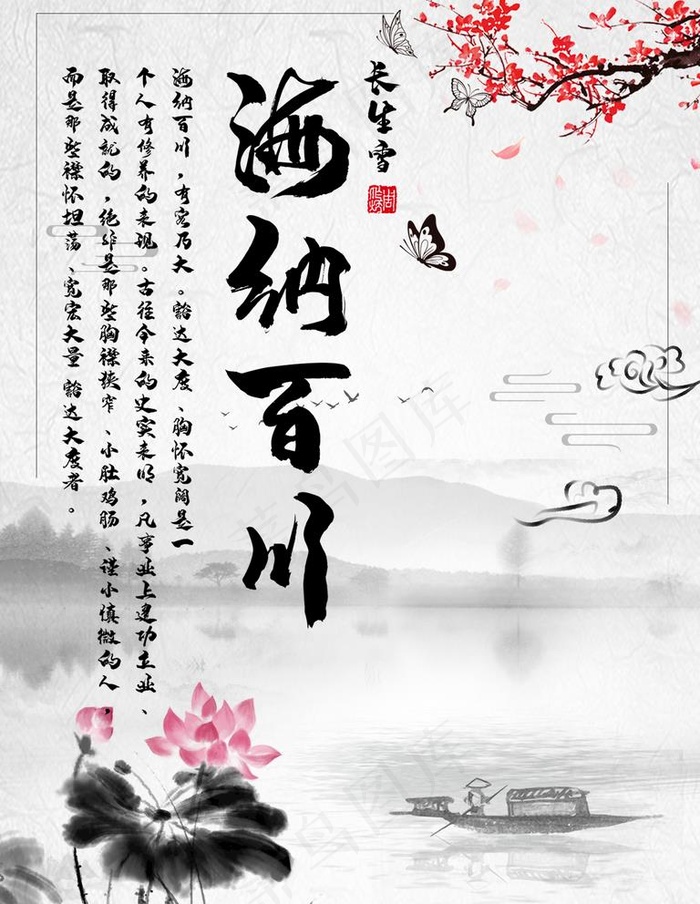 长生雪
海纳百川
海纳百川，有容乃大。豁达大度、胸怀宽阔是一
个人有修养的表现。古往今来的史实表明，凡事业上建功立业、
取得成就的，绝非是那些胸襟狭窄、小肚鸡肠、谨小慎微的人，
而是那些襟怀坦荡、宽宏大量 豁达大度者。
菜鸟图库